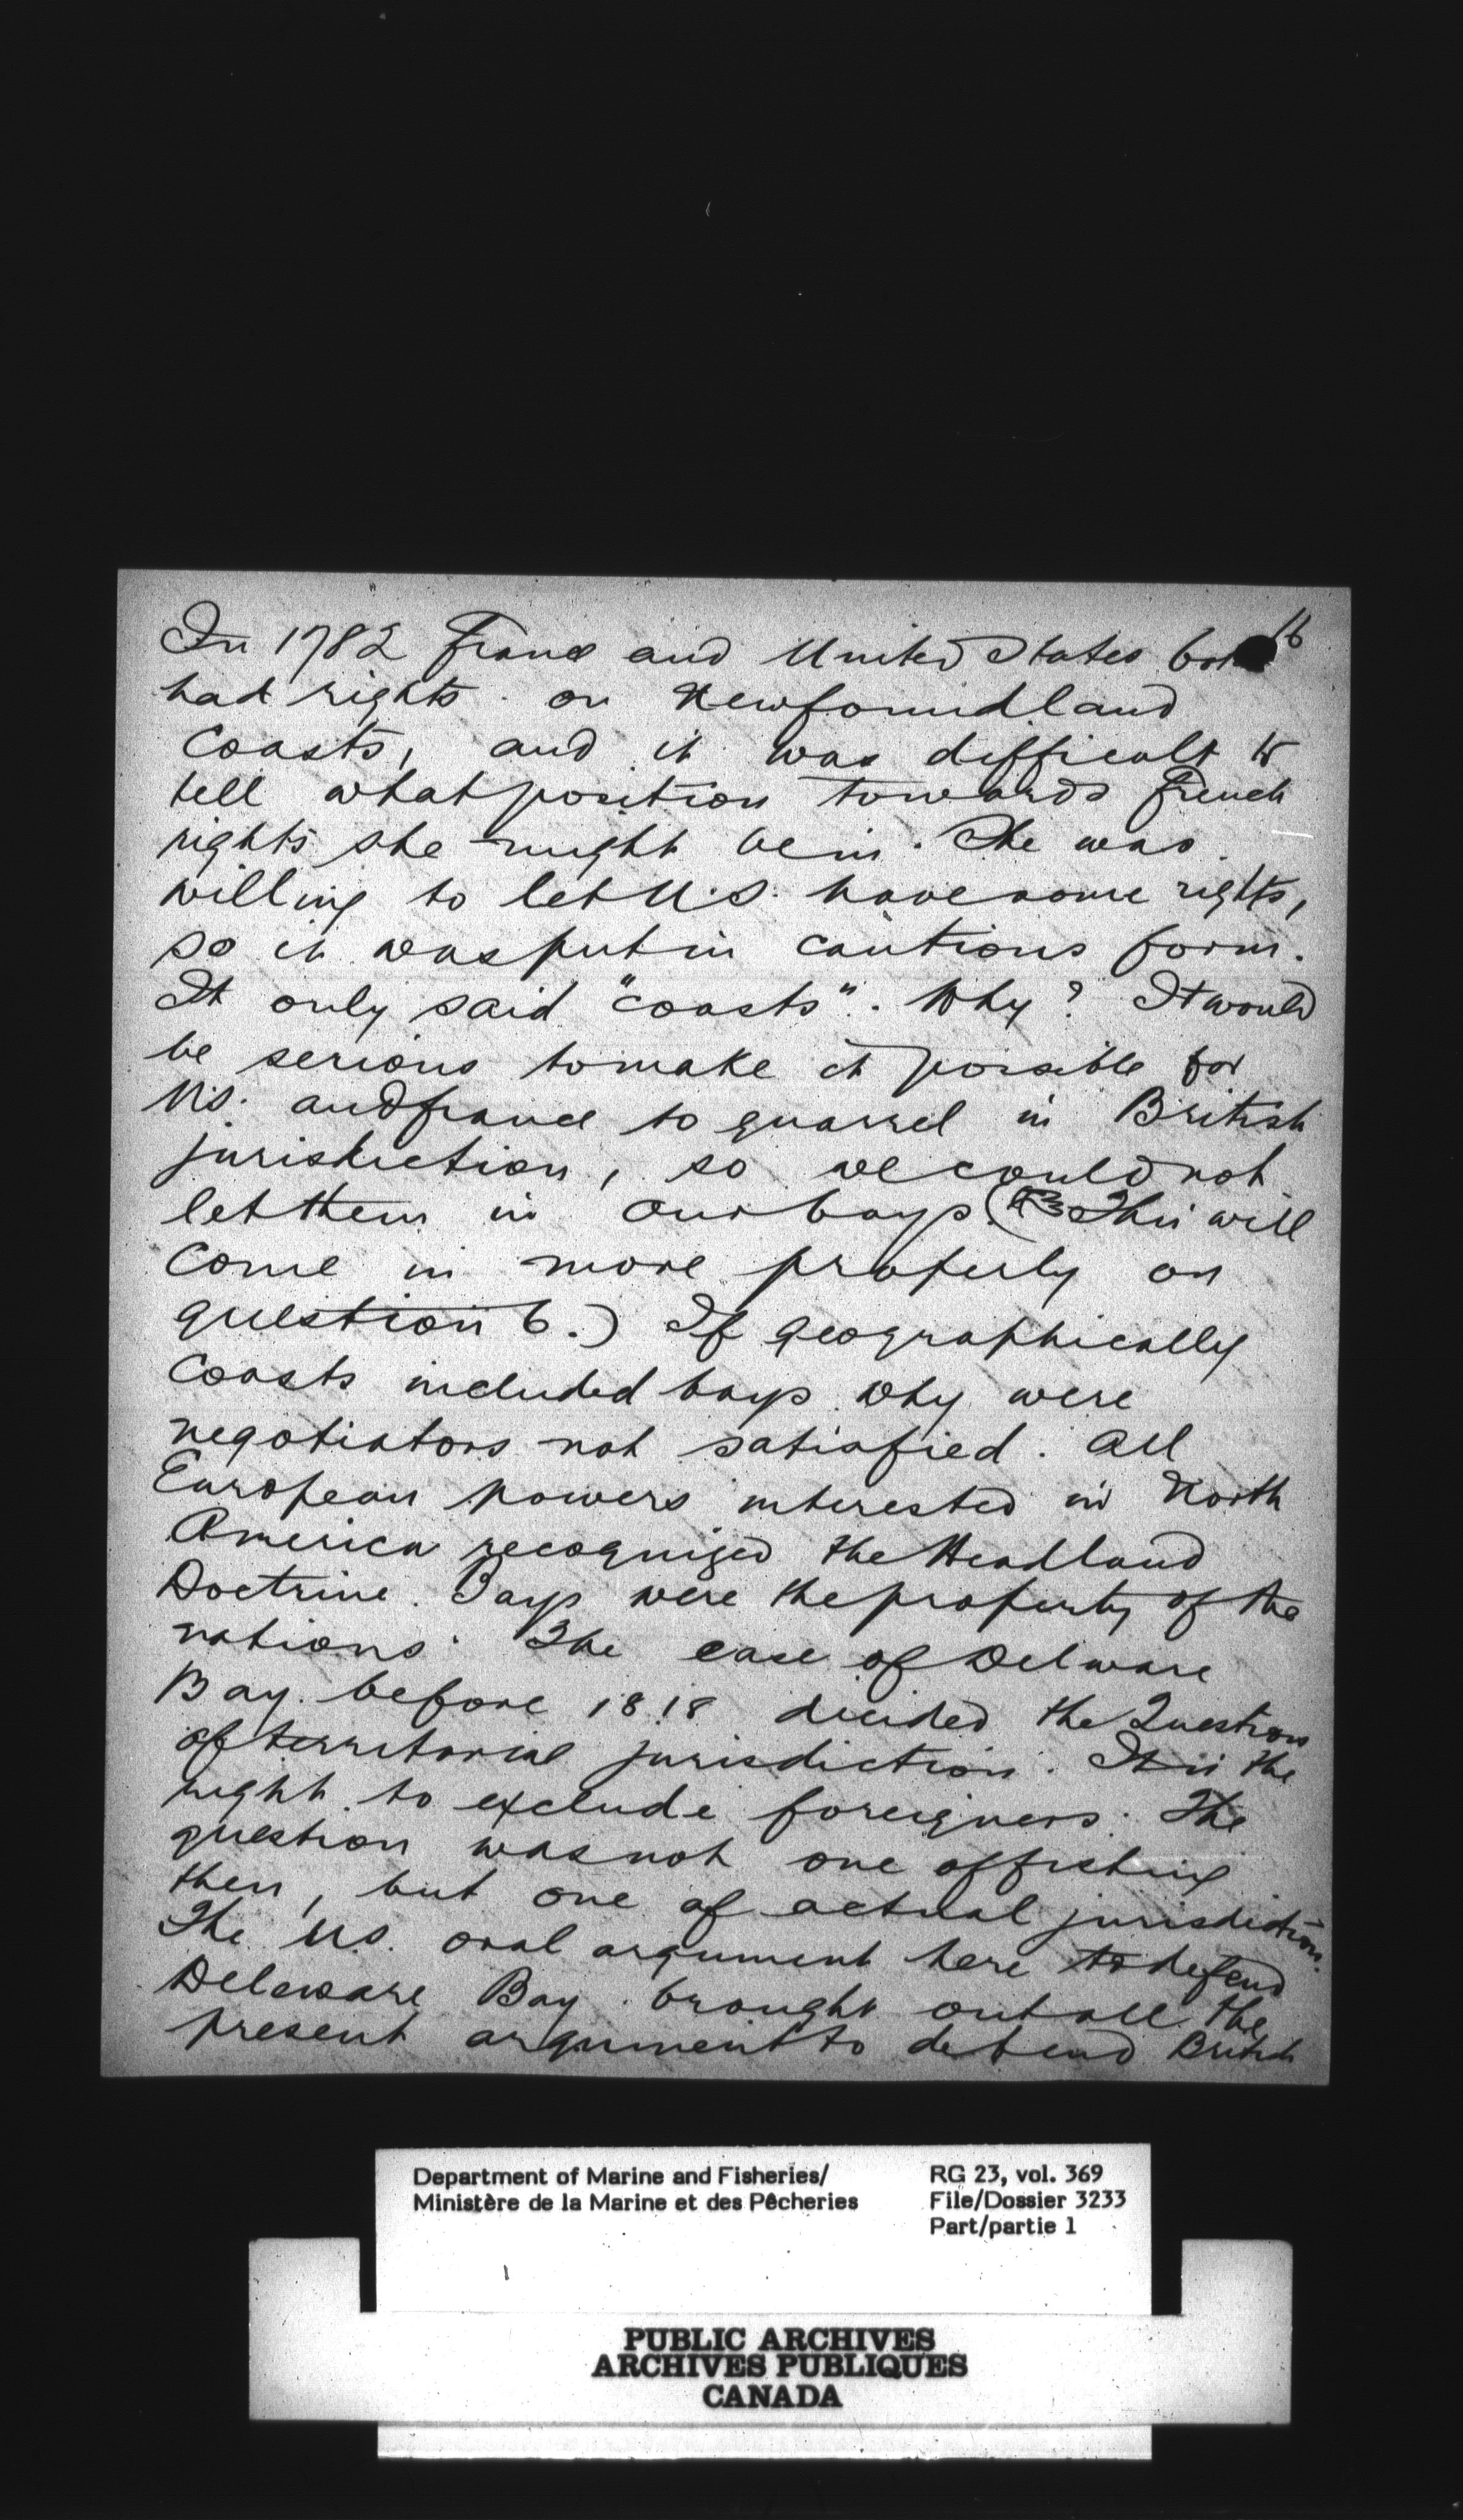 16
In 1782 France and United States both
had rights on Newfoundland
Coasts, and it was difficult to
tell what position towards French
rights she might be in. She was
willing to let U.S. have some rights,
so it was put in cautious form.
It only said "coasts". Why? It would
be serious to make it possible for
U.S. and france to quarrel in British
jurisdiction, so we could not
let them in our bays. (This will
come in more properly on
question 6.) If geographically
Coasts included bays why were
negotiators not satisfied. All
European powers interested in North
America recognized the Headland
Doctrine. Bays were the property of the
nations. The case of Delware
Bay before 1818 decided the Question
of territorial jurisdiction. It is the
right to exclude foreigners. The
question was not one of fishing
then, but one of actual jurisdiction.
The U.S. oral argument here to defend
Delaware Bay brought out all the
present argument to defend British
Department of Marine and Fisheries/
Ministère de la Marine et des Pêcheries
RG 23, vol. 369
File/Dossier 3233
Part/partie 1
PUBLIC ARCHIVES
ARCHIVES PUBLIQUES
CANADA